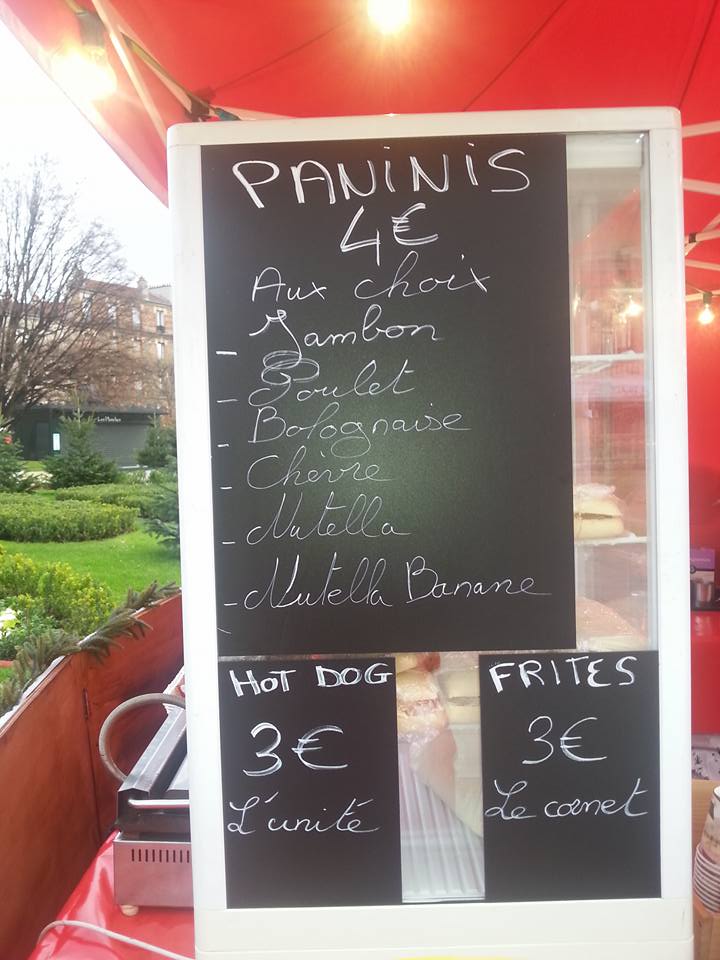 PANINIS
4€
Aux choix
- Jambon
- Poulet
- Bolognaise
- Chèvre
- Nutella
- Nutella Banane
HOT DOG
3€
L'unité
FRITES
3€
Le cornet